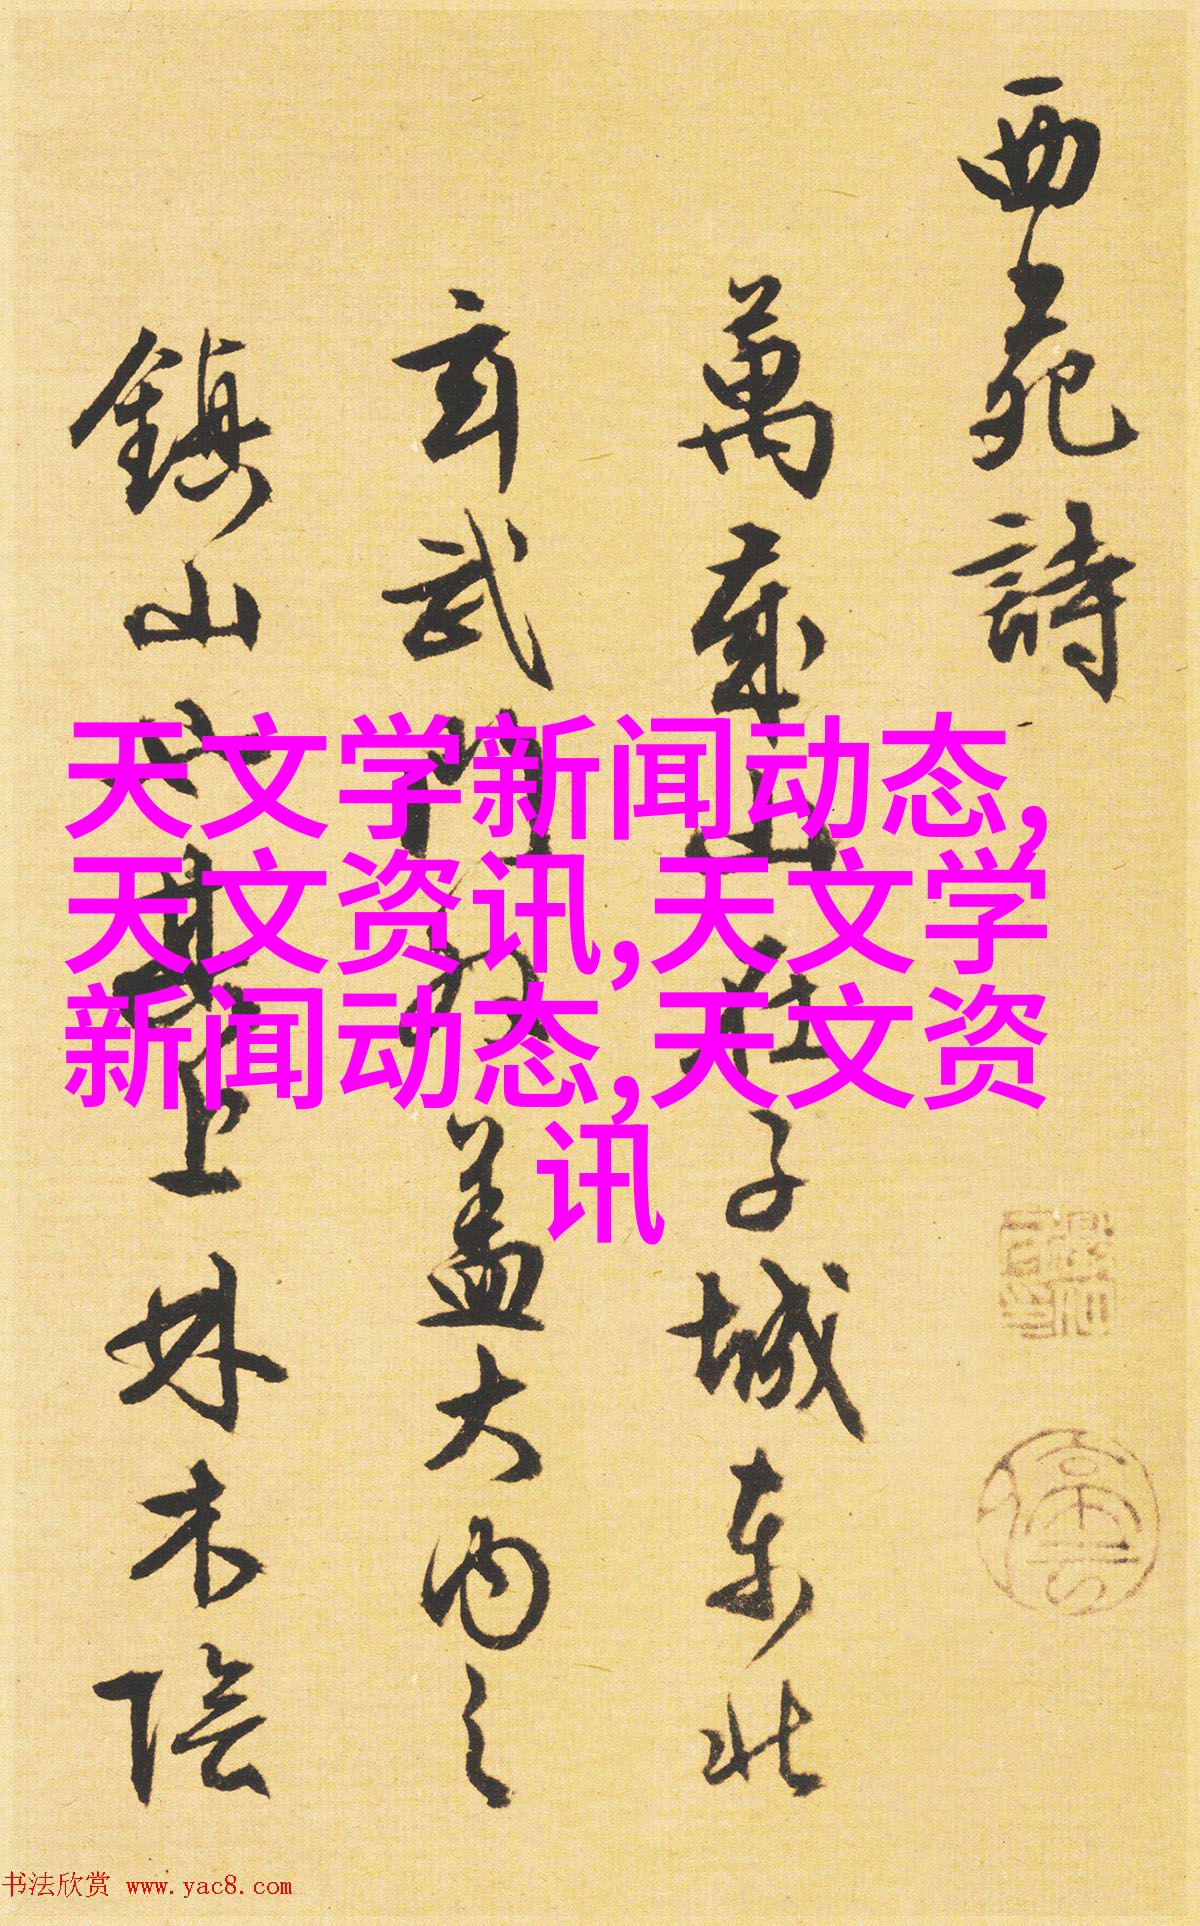 西苑詩
萬歲山在子城東北
玄武門外蓋大內之
鎮山也其上林木陰
天文学新闻动态,
天文资讯,天文学
新闻动态,天文资
讯
书法欣赏 www.yac8.com